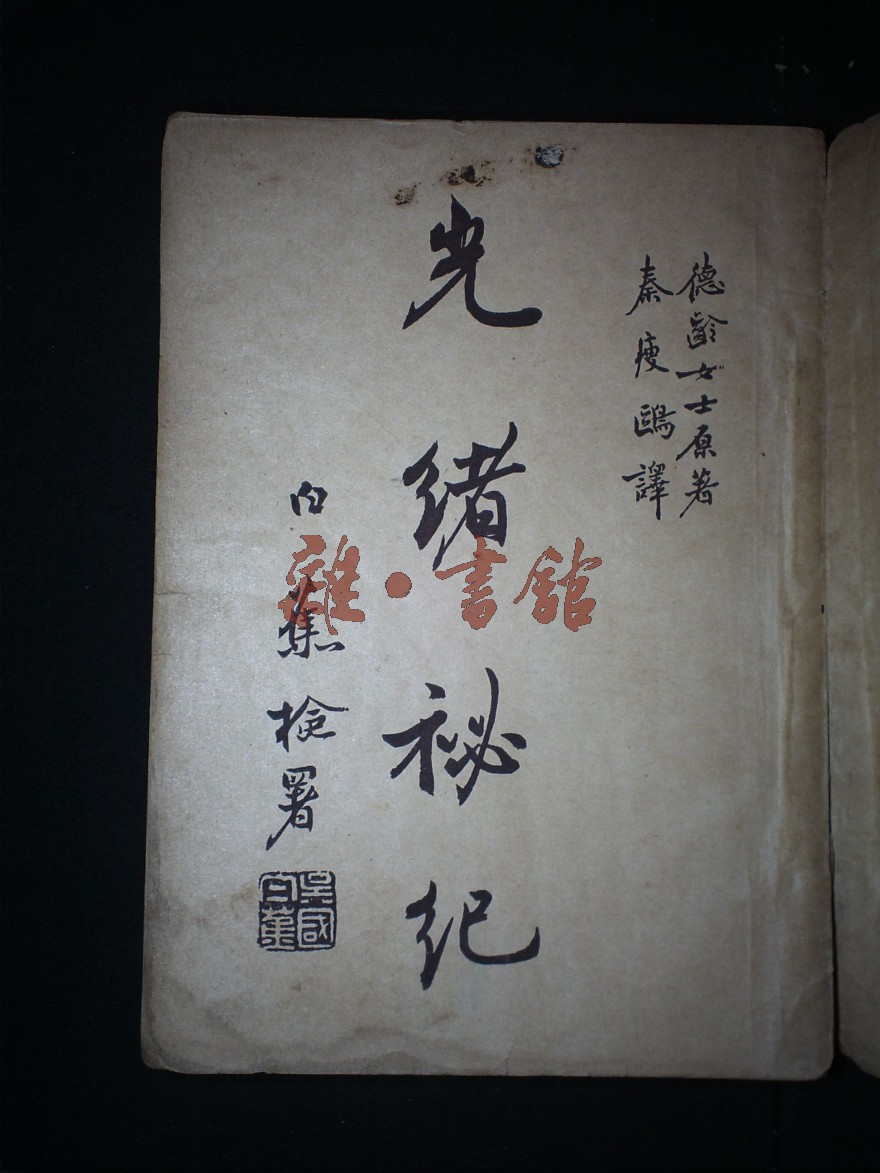 德齡女士原著
秦瘦鷗譯
光緒祕紀
白蕉檢署
雜·書館